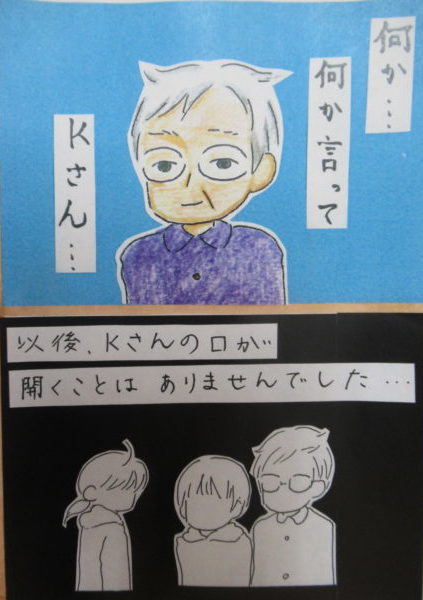 何か…
何か言って
Kさん…
以後、Kさんの口が
開くことは ありませんでした…